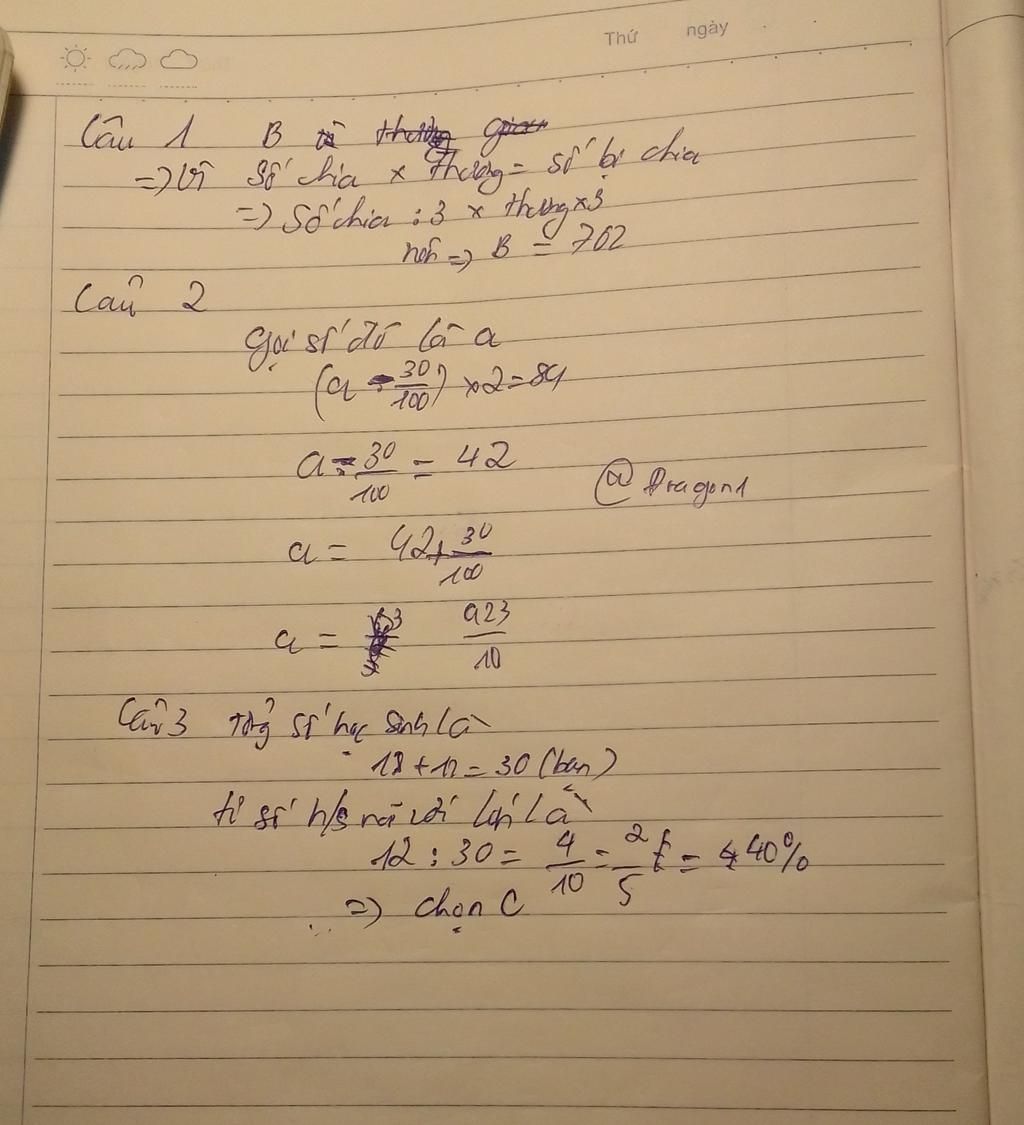 Thứ ngày
Câu 1 B
=> Vì số chia × thương = số bị chia
=> Số chia : 3 × thương × 3
nên => B = 702
Câu 2
Gọi số đó là a
(a - 30/100) × 2 = 84
a - 30/100 = 42
@Dragon1
a = 42 + 30/100
a = 423/10
Câu 3 tổng số học sinh là
18 + 12 = 30 (bạn)
tỉ số h/s nữ với lớp là
12 : 30 = 4/10 = 2/5 = 40%
=> chọn C